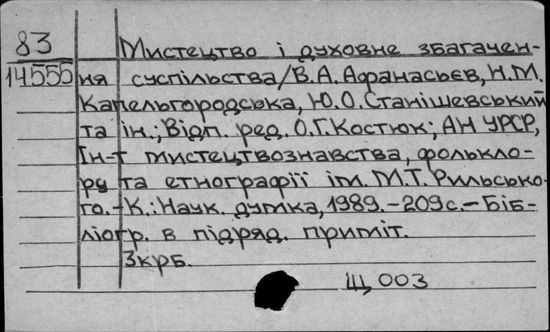 83
14555
Мистецтво і духовне збагачен-
ня суспільства/В.А.Афанасьєв, Н.М.
Капельгородська, Ю.О.Станішевський
та ін.; Відп. ред. О.Г.Костюк; АН УРСР,
Ін-т мистецтвознавства, фолькло-
ру та етнографії ім. М.Т. Рильсько-
го.-К.: Наук. думка, 1989.-209с.-Біб-
ліогр. в підряд. приміт.
3крб.
Щ 003